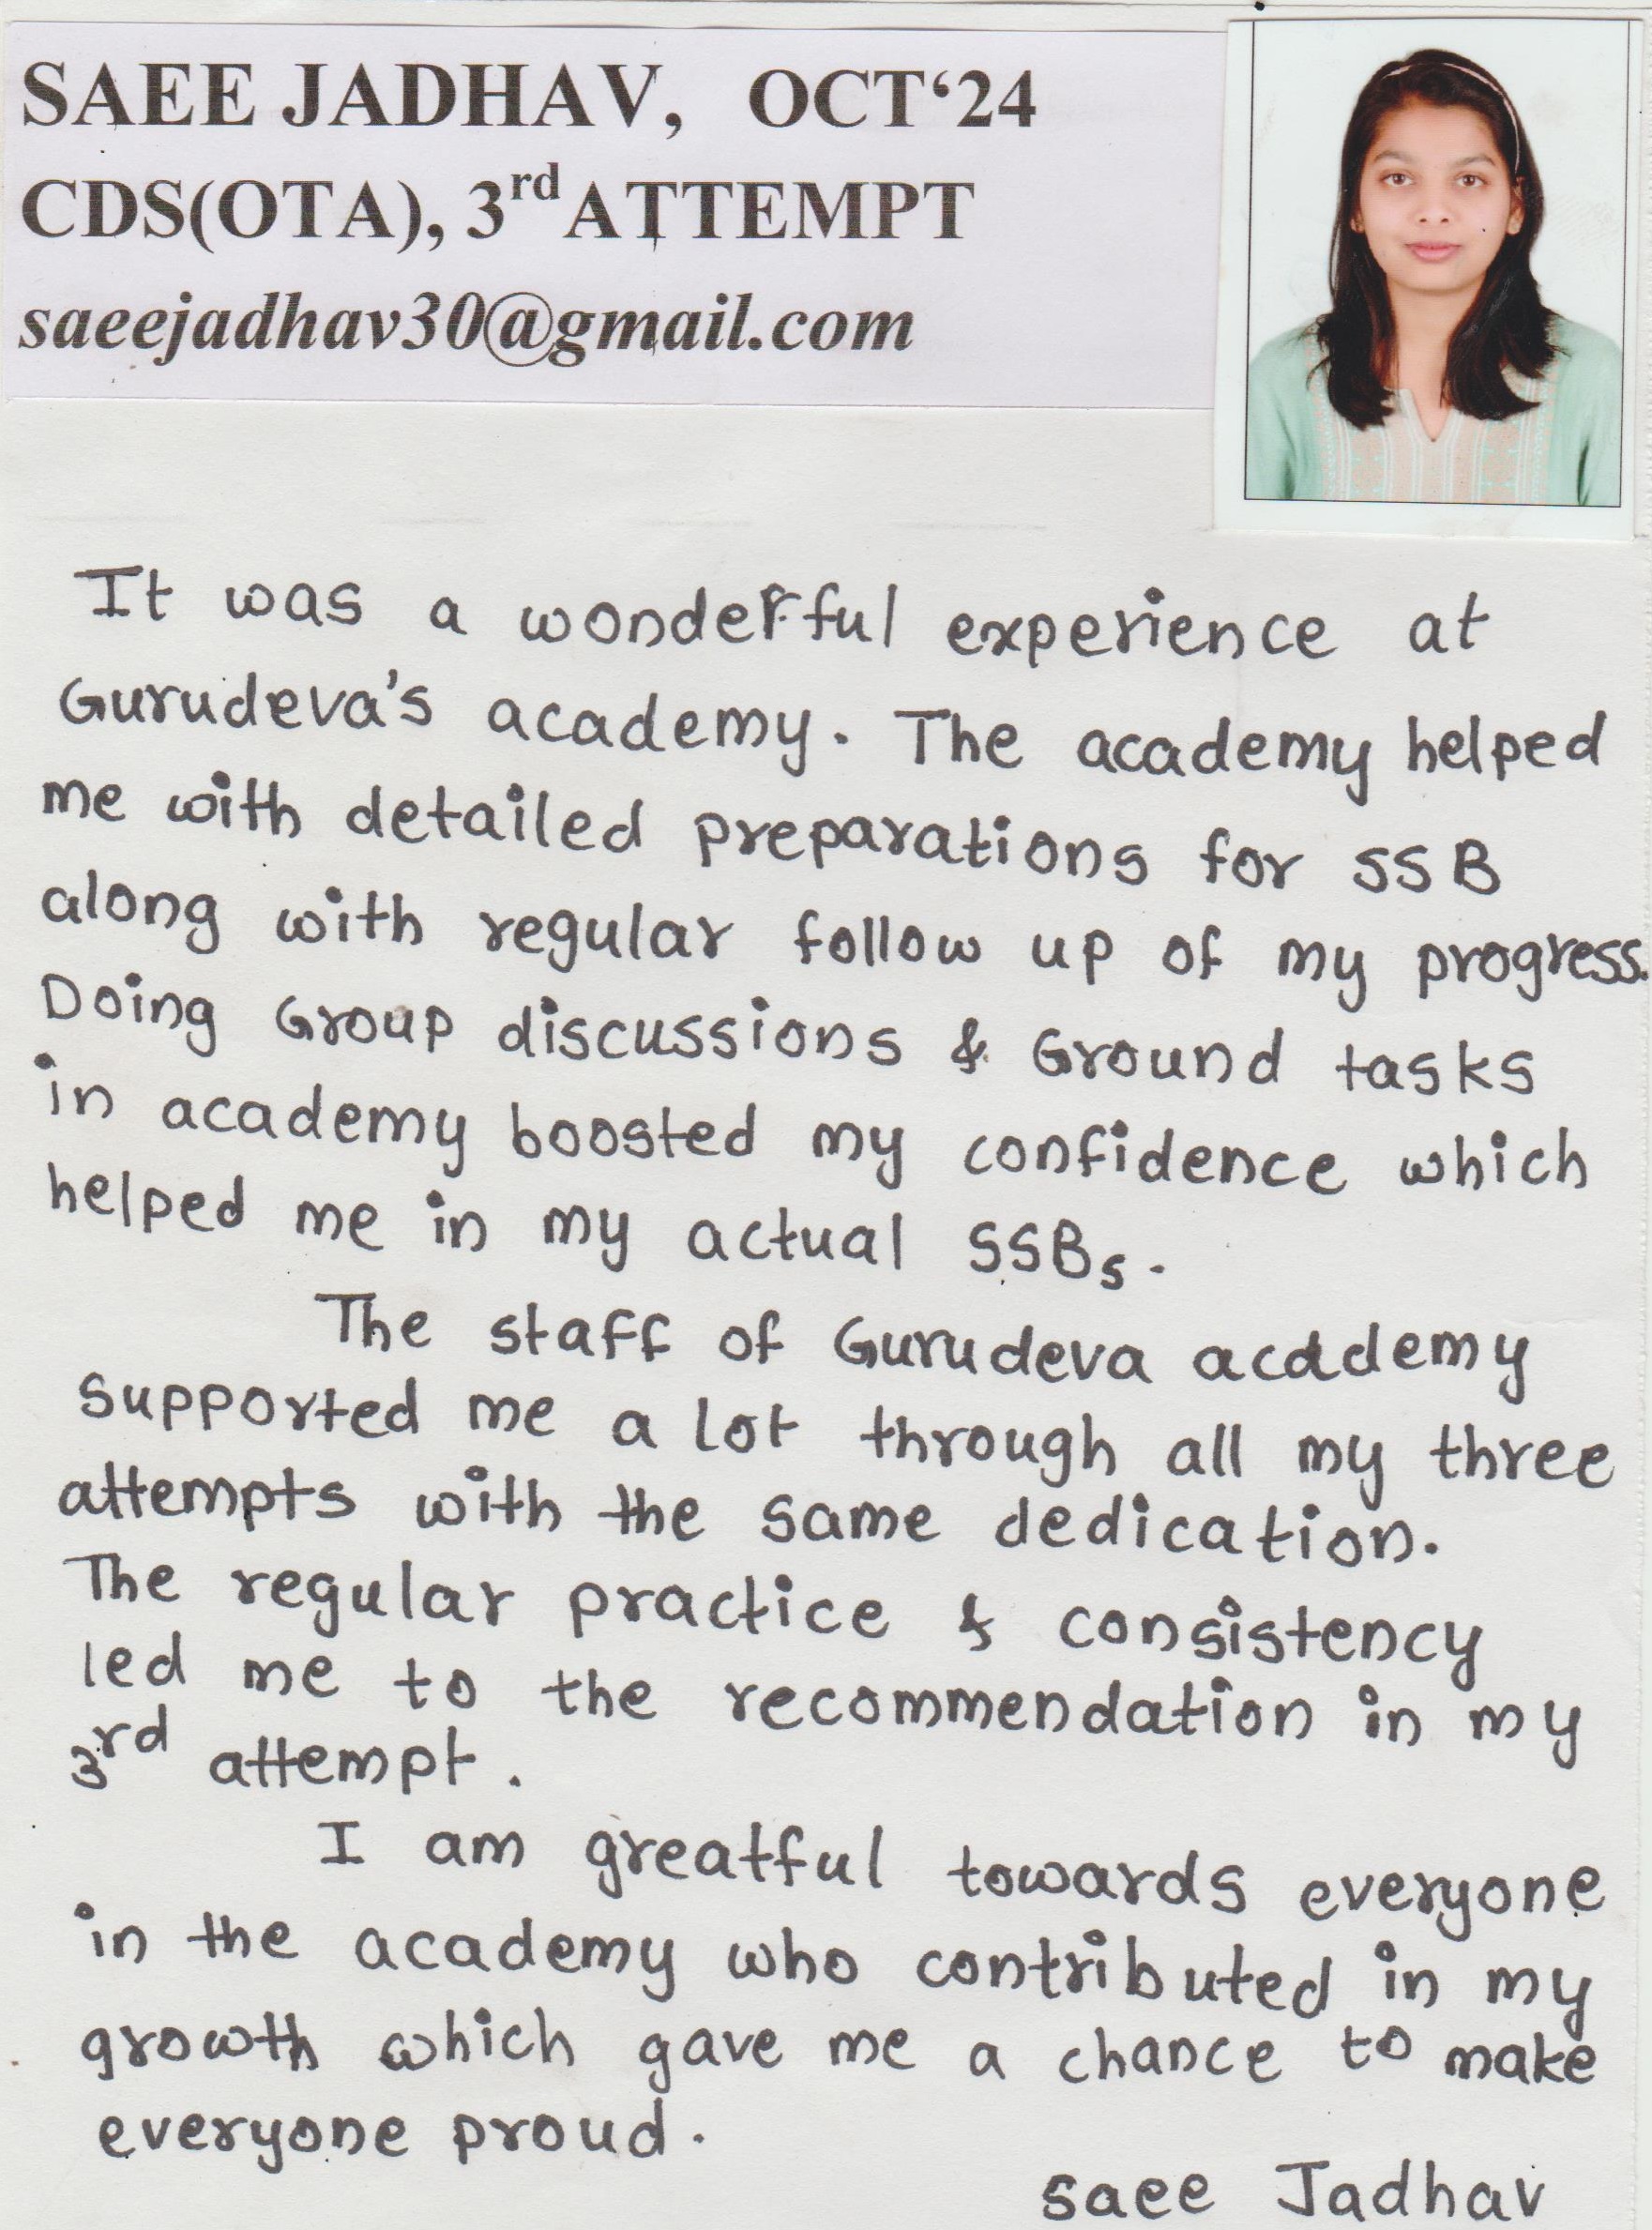 SAEE JADHAV, OCT‘24
CDS(OTA), 3rd ATTEMPT
saeejadhav30@gmail.com
It was a wonderful experience at
Gurudeva's academy. The academy helped
me with detailed preparations for SSB
along with regular follow up of my progress.
Doing Group discussions & Ground tasks
in academy boosted my confidence which
helped me in my actual SSBs.
The staff of Gurudeva academy
supported me a lot through all my three
attempts with the same dedication.
The regular practice & consistency
led me to the recommendation in my
3rd attempt.
I am greatful towards everyone
in the academy who contributed in my
growth which gave me a chance to make
everyone proud.
Saee Jadhav